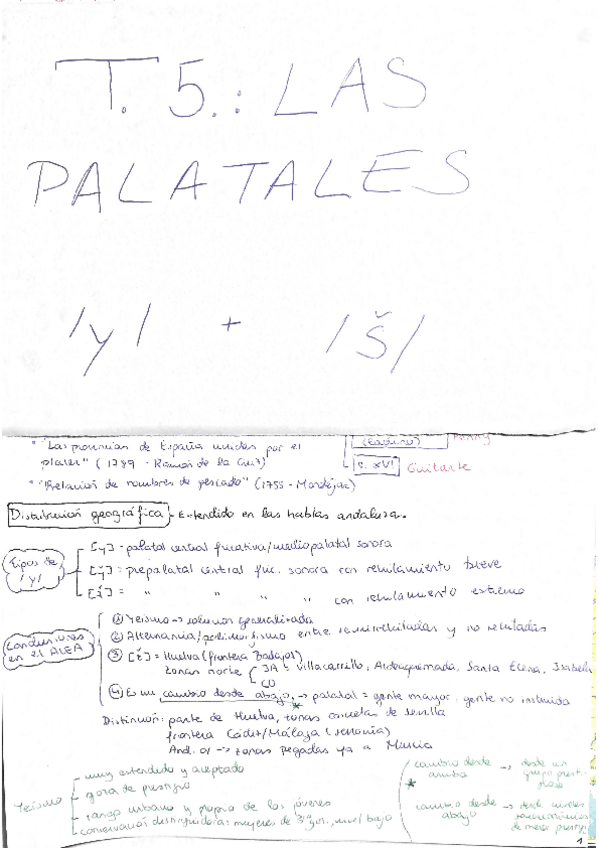 T. 5.: LAS
PALATALES
/y/ + /š/
(Ladino) Penny
" "Las provincias de España unidas por el
placer" (1789 - Ramón de la Cruz)
s. XVI Guitarte
" "Relación de nombres de pescado" (1755 - Mondéjar)
Distribución geográfica - Extendido en las hablas andaluzas.
Tipos de /y/
[y] - palatal central fricativa/mediopalatal sonora
prepalatal central fric. sonora con rehilamiento breve
" " " " con rehilamiento extremo
Conclusiones en el ALEA
① Yeísmo → solución generalizada
② Alternancia/polimorfismo entre semirrehiladas y no rehiladas
③ Huelva (frontera Badajoz)
zonas norte JA - Villacarrillo, Aldeaquemada, Santa Elena, Isabela
CO
④ Es un cambio desde abajo, → palatal = gente mayor, gente no instruida
Distinción: parte de Huelva, zonas concretas de Sevilla
frontera Cádiz/Málaga (serranía)
And. or → zonas pegadas ya a Murcia
Yeísmo
- muy extendido y aceptado
- goza de prestigio
- rasgo urbano y propio de los jóvenes
- conservación distinguidora: mujeres de 3ª gen., nivel bajo
* cambio desde arriba → desde un grupo prest.
cambio desde abajo → desde niveles socioeconómicos de menor prestigio
1